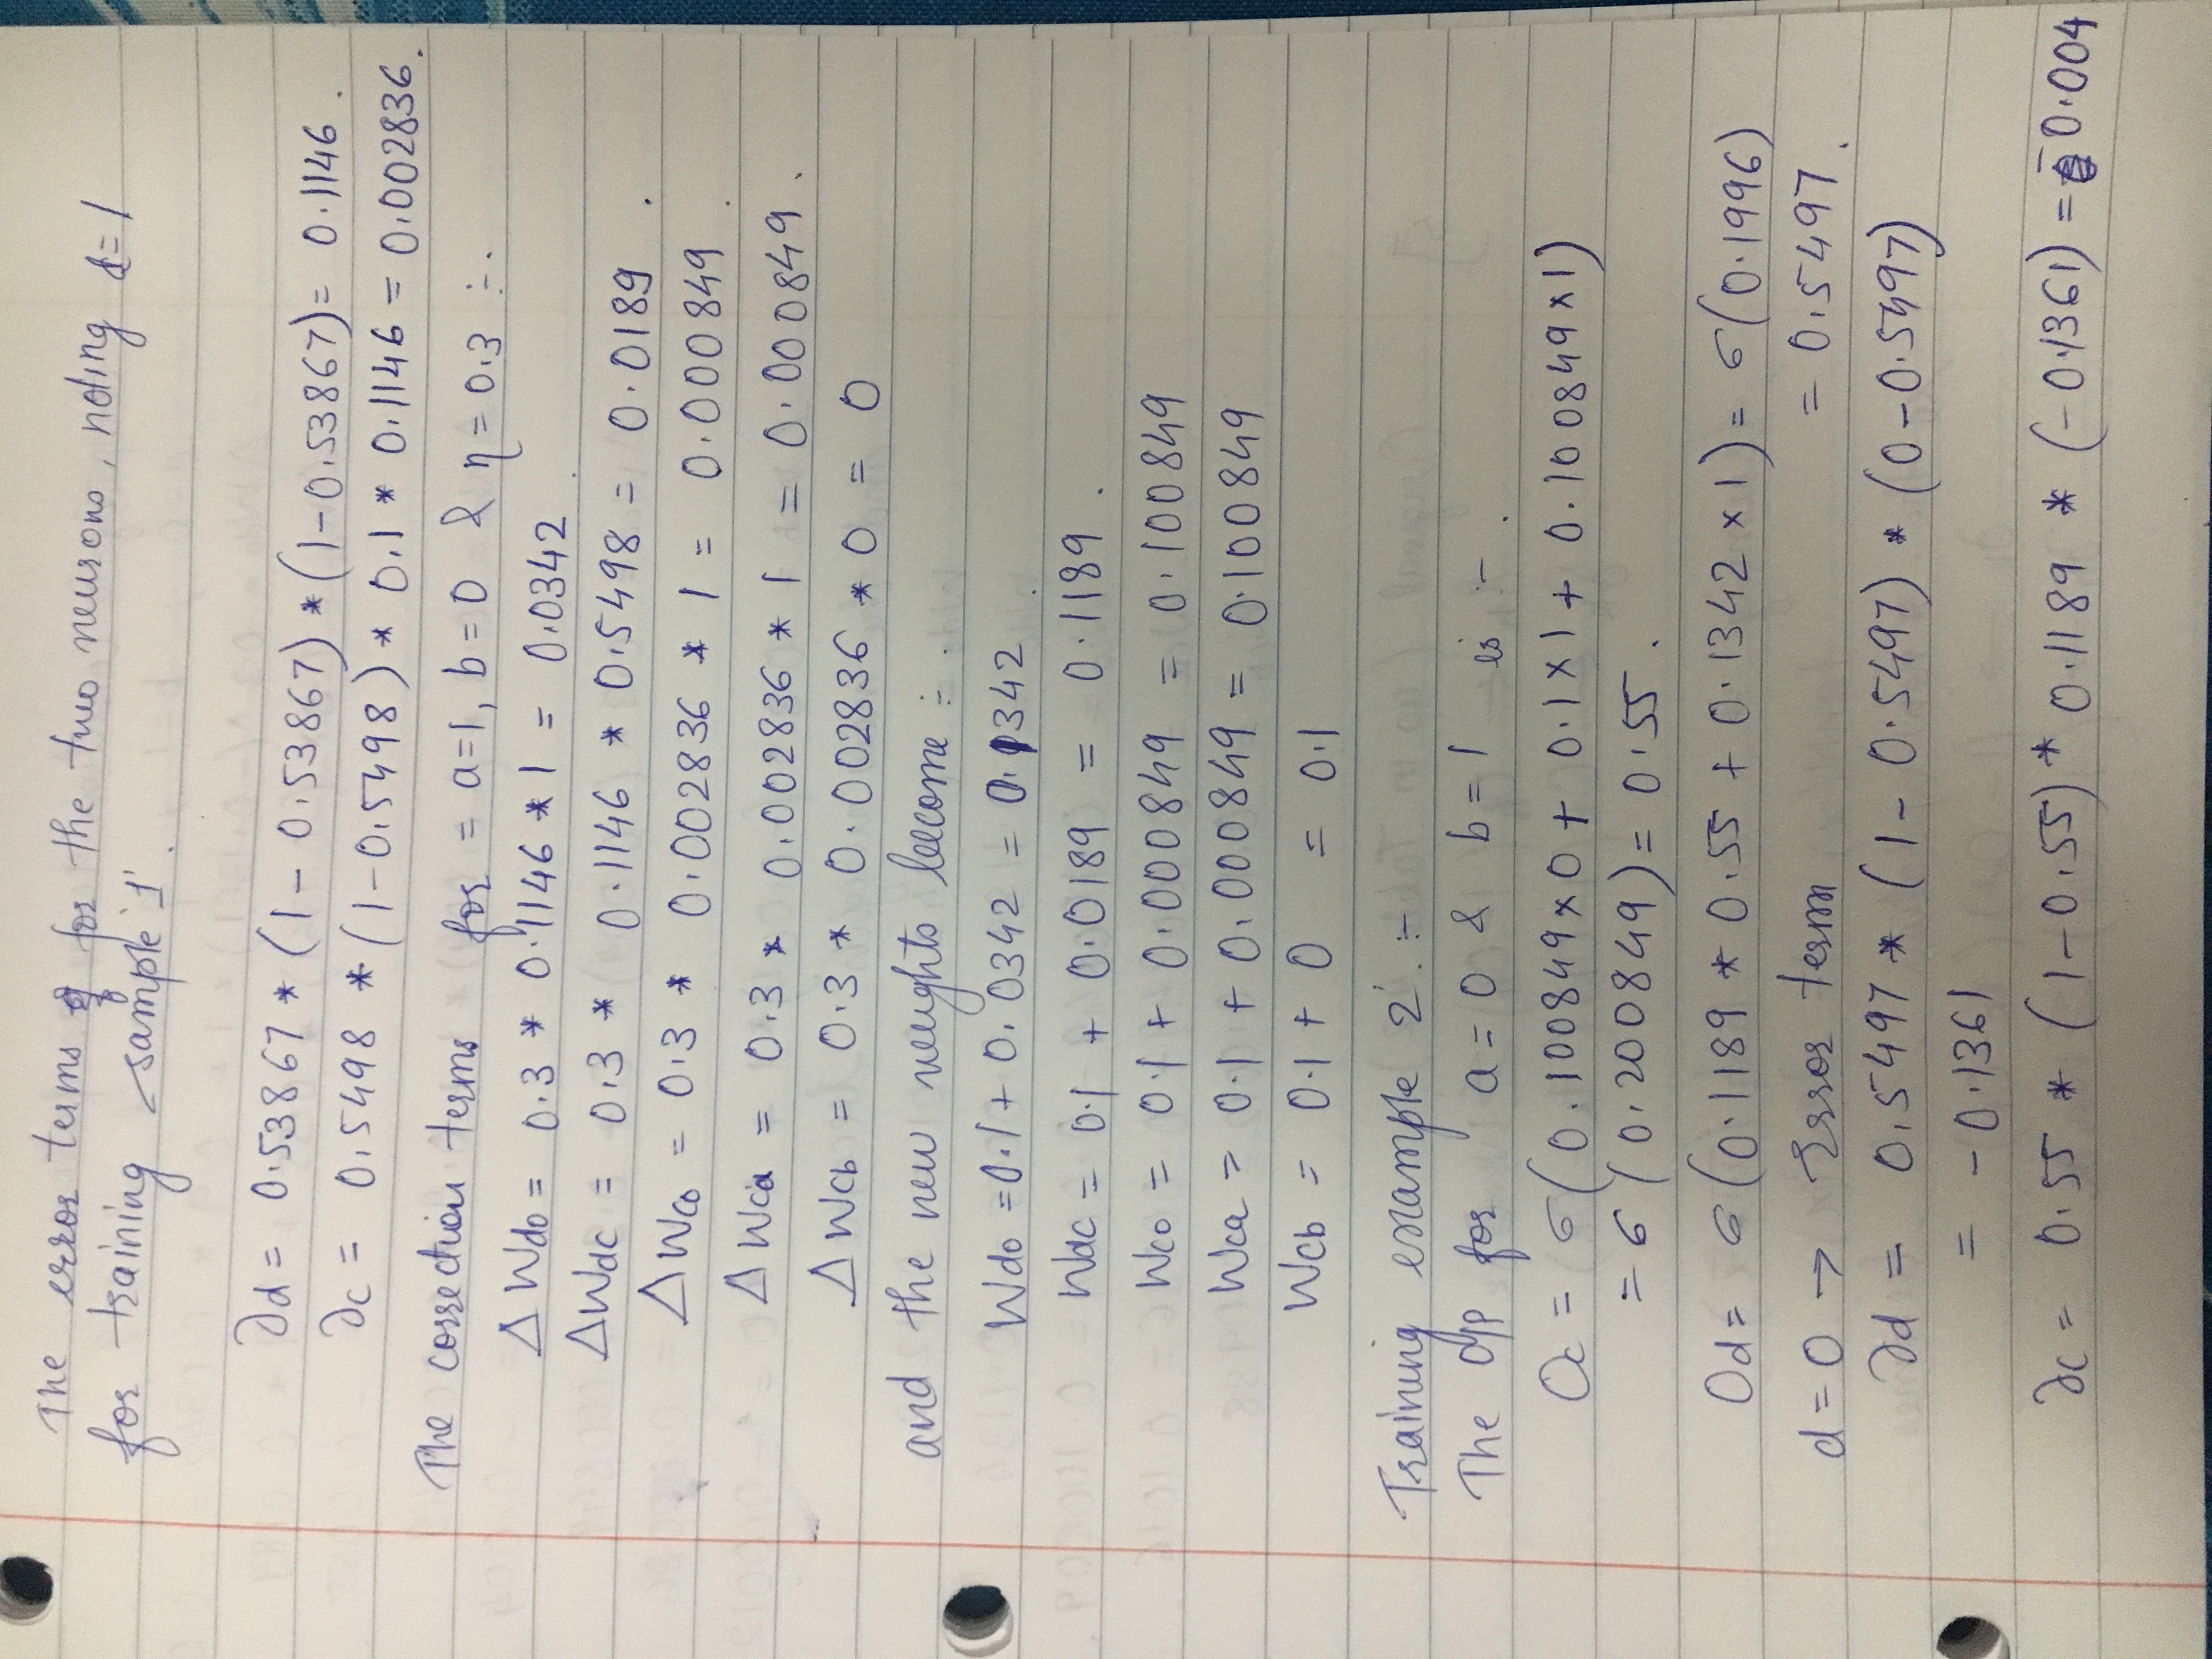 The error terms for the two neurons, noting d=1
for training sample '1'.
∂d = 0.53867 * (1 - 0.53867) * (1-0.53867) = 0.1146.
∂c = 0.5498 * (1-0.5498) * 0.1 * 0.1146 = 0.002836.
The correction terms for = a=1, b=0 & η = 0.3 :-.
ΔWdo = 0.3 * 0.1146 * 1 = 0.0342.
ΔWdc = 0.3 * 0.1146 * 0.5498 = 0.0189.
ΔWco = 0.3 * 0.002836 * 1 = 0.000849.
ΔWca = 0.3 * 0.002836 * 1 = 0.000849.
ΔWcb = 0.3 * 0.002836 * 0 = 0
and the new weights become :- .
Wdo = 0.1 + 0.0342 = 0.1342.
Wdc = 0.1 + 0.0189 = 0.1189.
Wco = 0.1 + 0.000849 = 0.100849
Wca = 0.1 + 0.000849 = 0.100849
Wcb = 0.1 + 0 = 0.1
Training example 2'. :-
The O/P for a=0 & b=1 is :- .
Oc = σ(0.100849×0 + 0.1×1 + 0.100849×1)
= σ(0.200849) = 0.55.
Od = σ(0.1189 * 0.55 + 0.1342 × 1) = σ(0.1996)
d=0 → Error term = 0.5497.
∂d = 0.5497 * (1 - 0.5497) * (0-0.5497)
= -0.1361
∂c = 0.55 * (1-0.55) * 0.1189 * (-0.1361) = -0.004